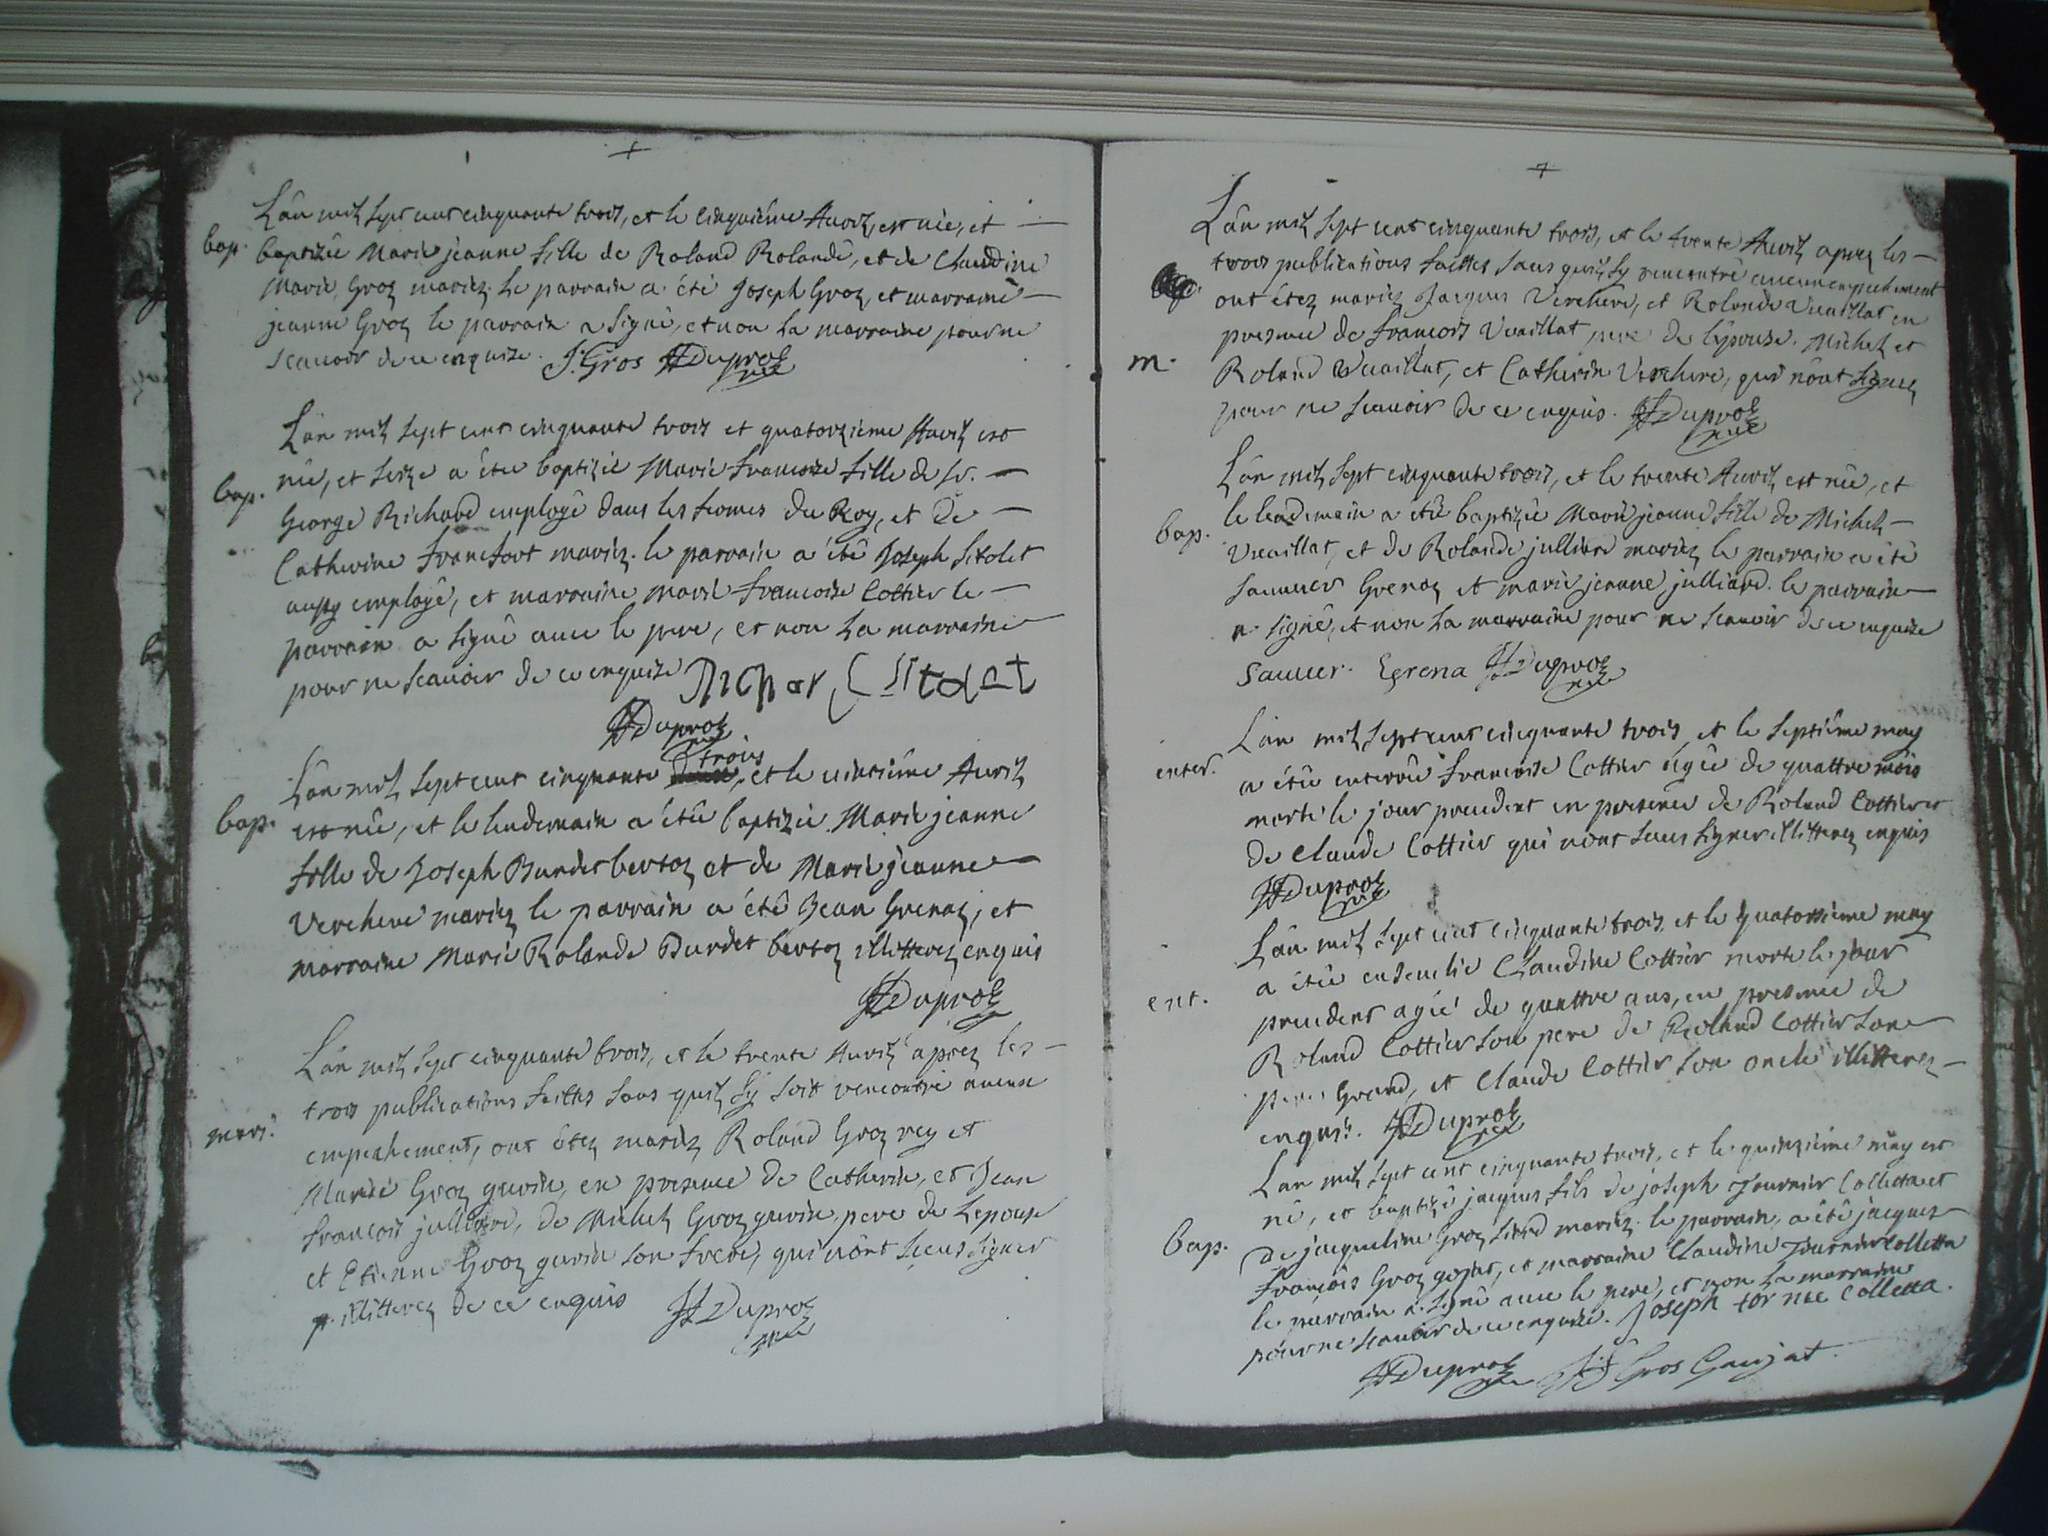 Lân mil sept cent cinquante trois, et le cinquiême Avril, est née, et
bap. baptizée Marie jeanne fille de Roland Rolandê, et de Claudine
Marie Groz mariez. le parrain a été Joseph Groz, et marraine
jeanne Groz le parrain a signé, et non la marraine pour ne
scauoir de ce enquise. J. Gros Duproz
Lân mil sept cent cinquante trois et quatorzieme Avril est
bap. née, et seize a êtée baptizée Marie francoise fille de Sr.
George Richard employé dans les fermes du Roy, et de
Catherine francfort mariez. le parrain a été Joseph Sitolet
aussy employê, et marraine marie francoise Cottier le
parrain a signê auec le pere, et non la marraine
pour ne scauoir de ce enquise
Duproz
trois
Lân mil sept cent cinquante et le vintiême Avril
bap. est née, et le lendemain a êtée baptizée Marie jeanne
fille de Joseph Burdet bertoz et de Marie jeanne
Verchere mariez le parrain a été Jean Grenaz, et
marraine Marie Rolande Burdet bertoz illitterez enquis
Duproz
Lân mil sept cinquante trois, et le trente Avril aprez les
trois publications faittes sans quil sy soit rencontré aucun
mari. empechement, ont êtez mariez Roland Groz rey et
Marie Groz gurin, en presence de Catherin, et Jean
francois julliard, de Michel Groz gurin pere de lepouse
et Etienne Groz gurin son frere, qui nônt sceus signer
illitterez de ce enquis Duproz
Lân mil sept cent cinquante trois, et le trente Avril aprez les
trois publications faittes sans quil sy rencontré aucun empechement
ont êtez mariez Jacques Verchere, et Rolande Vuaillat en
presence de francois Vuaillat pere de lêpouse. Michel et
m. Roland Vuaillat, et Catherin Verchere, qui nônt signez
pour ne scauoir de ce enquis. Duproz
Lân mil sept cinquante trois, et le trente Avril est née, et
le lendemain a êtê baptizée Marie jeanne fille de Michel
bap. Vuaillat, et de Rolande julliard mariez le parrain a êtê
sauueur Grenaz et marie jeanne julliard. le parrain
a signé, et non la marraine pour ne scauoir de ce enquise
Sauuer. Grena Duproz
Lân mil sept cent cinquante trois, et le septiême may
enter. a êtée enterrée francoise Cottier âgée de quattre mois
morte le jour precedent en presence de Roland Cottier et
de Claude Cottier qui nônt sceus signer illitterez enquis
Duproz
Lân mil sept cent cinquante trois, et le quatorzieme may
ent. a êtée enseuelie Claudine Cottier morte le jour
precedent agée de quattre ans, en presence de
Roland Cottier son pere de Roland Cottier son
pere Grand, et Claude Cottier son oncle illitterez
enquis. Duproz
Lân mil sept cent cinquante trois, et le quinzieme may est
né, et baptizé jacques fils de joseph Tournier Colletta et
bap. de jacqueline Groz mariez. le parrain, a êtê jacques
francois Groz gojat, et marraine Claudine Tournier Colletta
le parrain a signé auec le pere, et non la marraine
pour ne scauoir de ce enquise. Joseph tornie Colletta.
Duproz Gros Gaujat.